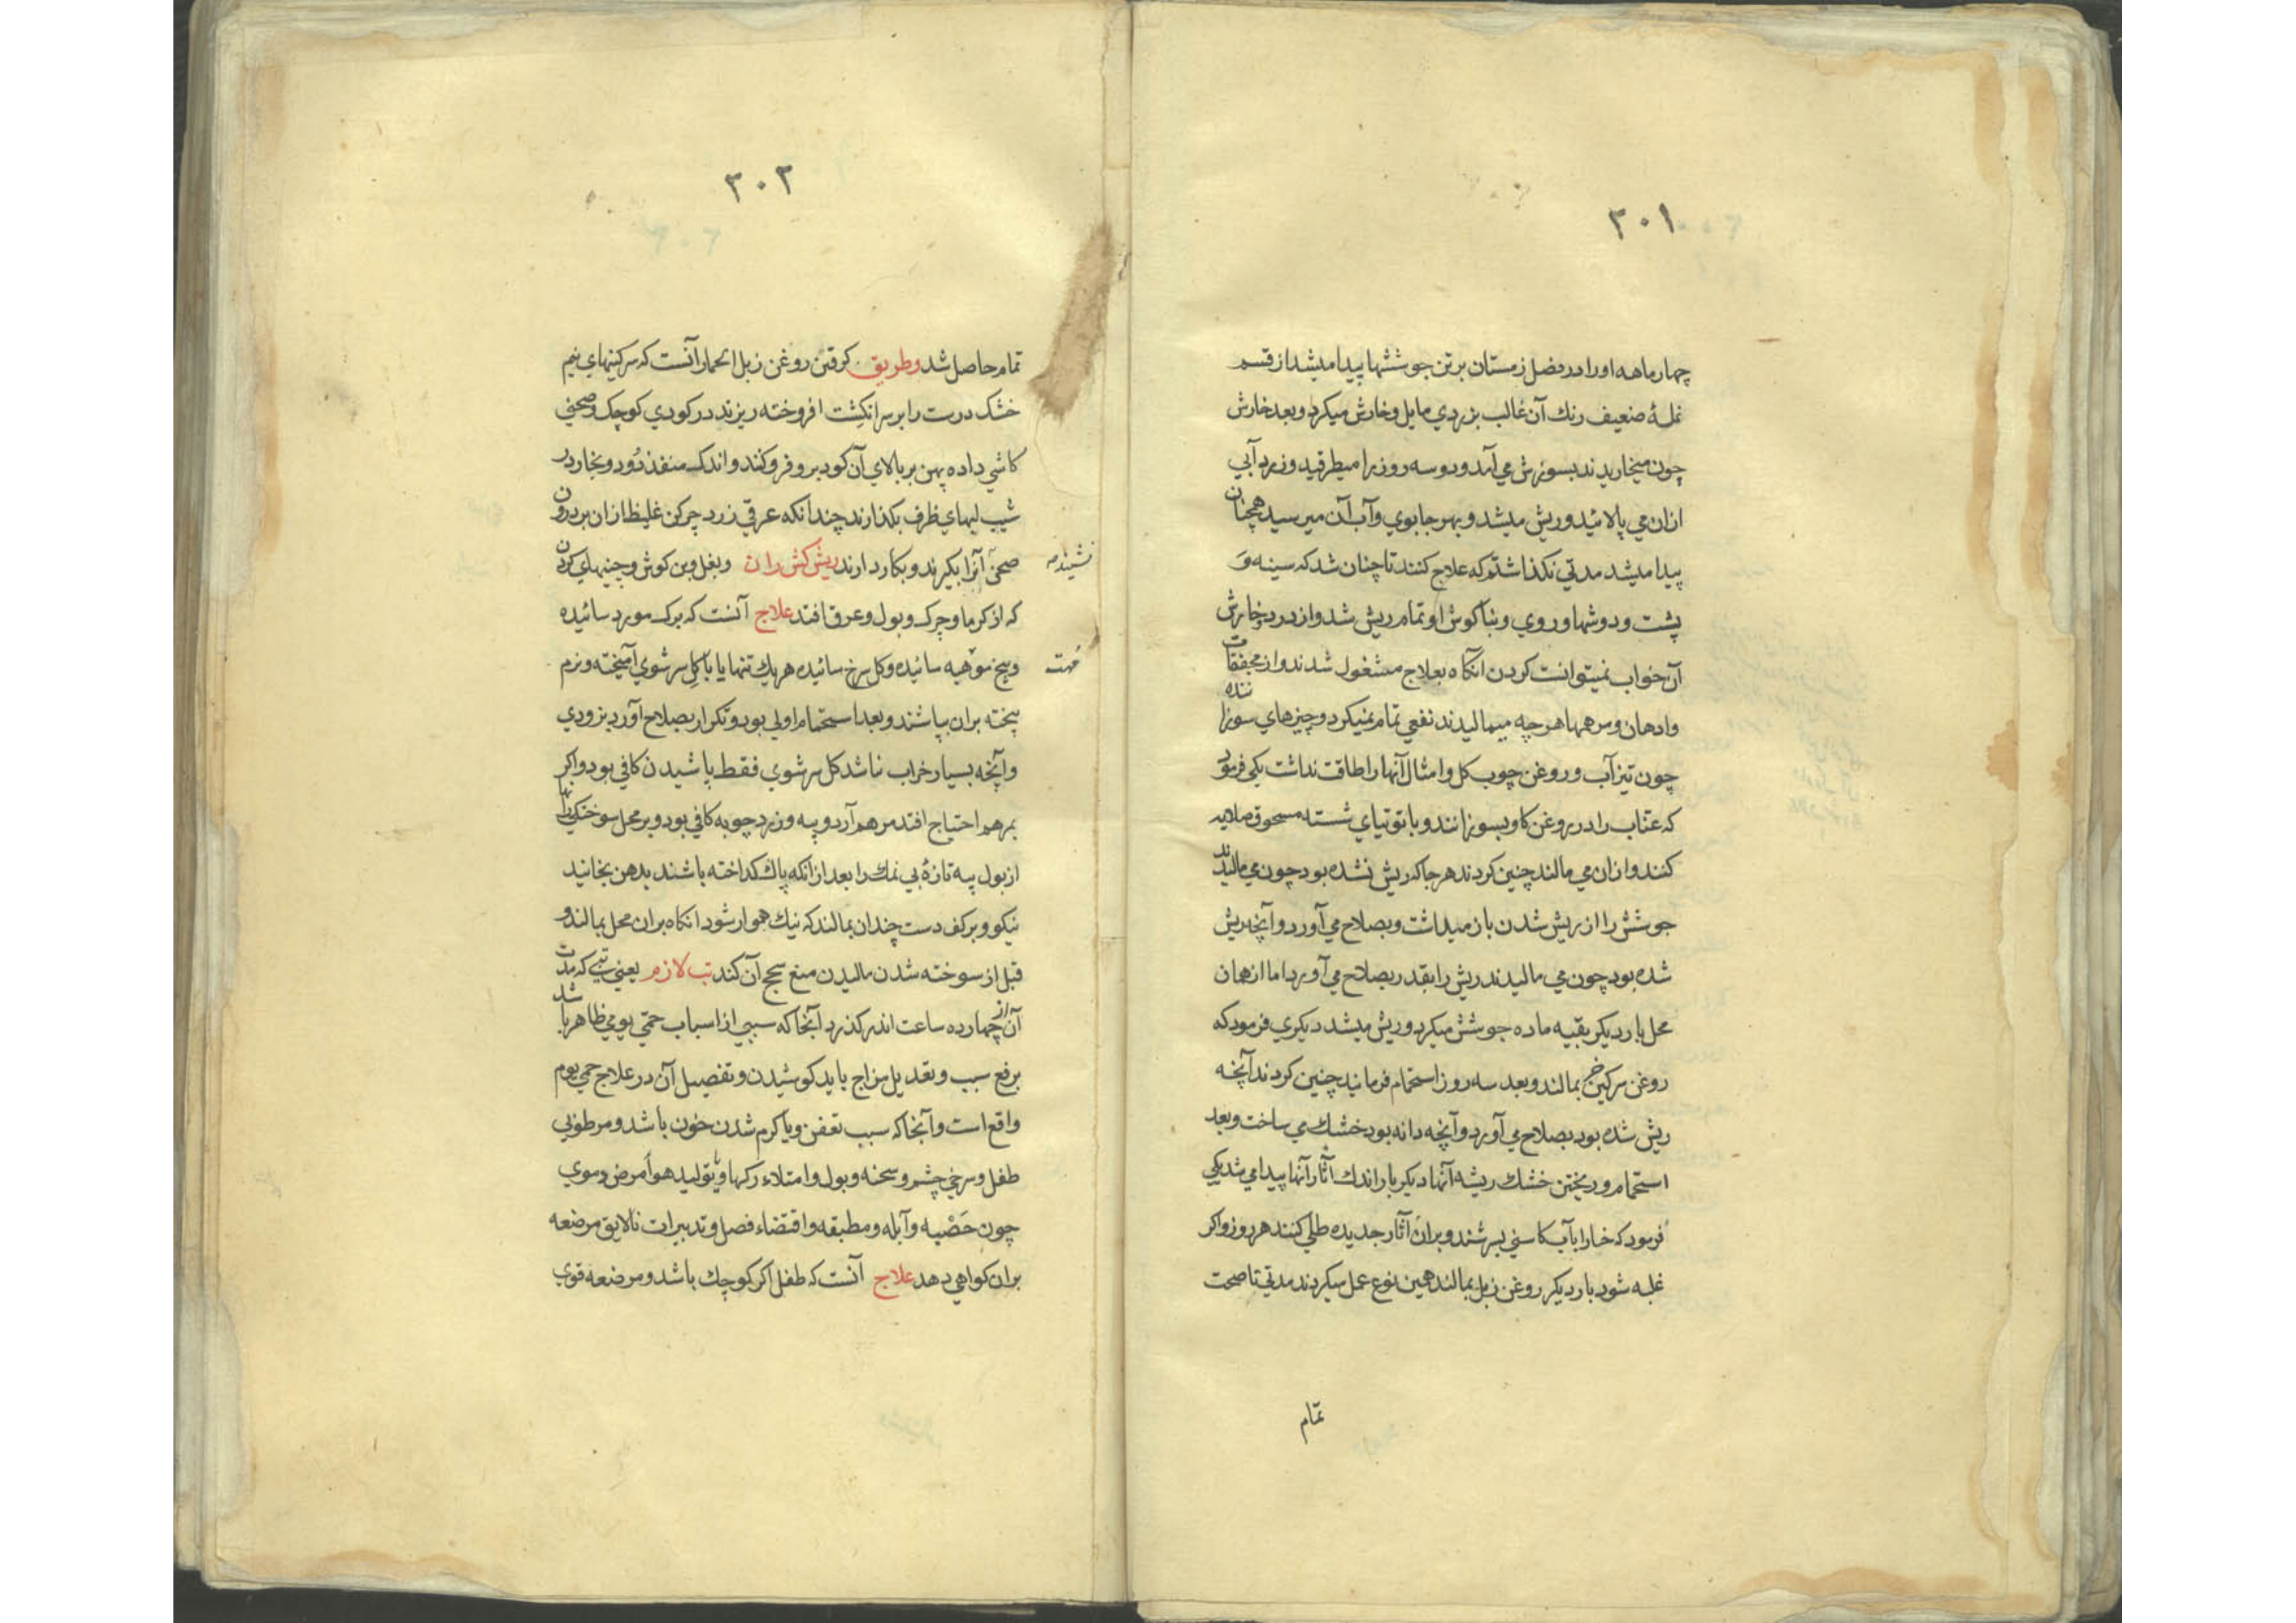 ۳۰۱
چهار ماهه او را در فصل زمستان بر تن جوششها پیدا میشد از قسم
نملهٔ ضعیف رنك آن غالب بزردي مایل و خارش میکرد و بعد خارش
چون میخاریدند بسوزش می آمد و دو سه روز را میطرقید و زرد آبی
ازان می پالائید و ریش میشد و بهر جا بوي و آب آن میرسید همچنان
پیدا میشد مدتي نکذاشتم که علاج کنند تا چنان شد که سینه و
پشت و دوشها و روي و بناکوش او تمام ریش شد و از درد و خارش
آن خواب نمیتوانست کردن آنکاه بعلاج مشغول شدند و از مجففات
وادهان و مرهمها هرچه میمالیدند نفعي تمام نمیکرد و چیزهاي سوزاننده
چون تیزآب و روغن چوب کل و امثال آنها را طاقت نداشت یکی فرمود
که عناب را در روغن کاو بسوزانند و با توتیاي شسته مسحوق صلایه
کنند و ازان می مالند چنین کردند هرجا که ریش نشده بود چون می مالیدند
جوشش را از ریش شدن باز میداشت و بصلاح می آورد و آنچه ریش
شده بود چون می مالیدند ریش را بقدر بصلاح می آورد اما از همان
محل بار دیکر بقیه ماده جوشش میکرد و ریش میشد دیکري فرمود که
روغن سرکین خر بمالند و بعد سه روز استحمام فرمایند چنین کردند آنچه
ریش شده بود بصلاح می آورد و آنچه دانه بود خشك می ساخت و بعد
استحمام و ریختن خشك ریشه آنها دیکر بار اندك آثار آنها پیدا می شد یکی
فرمود که حنا را بآب کاسني بسرشند و بران آثار جدیده طلي کنند هر روز و اکر
غلبه شود بار دیکر روغن زبل بمالند همین نوع عمل میکردند مدتي تا صحت
تمام
۳۰۲
تمام حاصل شد وطریق کرفتن روغن زبل الحمار آنست که سرکینهاي نیم
خشك درست را بر سر انکشت افروخته ریزند در کودي کوچك و صحني
کاشي داده پهن بر بالاي آن کود برو فرو کنند و اندك منفذ دود و بخار در
شیب لبهاي ظرف بکذارند چندانکه عرقي زرد چرکن غلیظ ازان بر درون
صحن نشیند آنرا بکیرند و بکار دارند ریش کش ران و بغل و بن کوش و چینهاي کردن
که از کرما و چرك و بول و عرق افتد علاج آنست که برك مورد سائیده
و بیخ سوهیه سائیده و کل سرخ سائیده هر یك تنها یا با کل سرشوي آمیخته و نرم
بیخته بران بپاشند و بعد استحمام اولی بود و تکرار بصلاح آورد بزودي
و آنچه بسیار خراب نباشد کل سرشوي فقط پاشیدن کافي بود و اکر
بمرهم احتیاج افتد مرهم آرد و پیه و زرد چوبه کافي بود و بر محل سوختکیها
از بول پیه تازهٔ بی نمك را بعد از انکه پاك کداخته باشند بدهن بخائید
نیکو و بر کف دست چندان بمالند که نیك هموار شود انکاه بران محل بمالند و
قبل از سوخته شدن مالیدن منع سحج آن کند تب لازم یعني تبی که مدت
آن از چهارده ساعت اندر کذرد آنجا که سببي از اسباب حمّی یومي ظاهر باشد
برفع سبب و تعدیل مزاج باید کوشیدن و تفصیل آن در علاج حمي یوم
واقع است و آنجا که سبب تعفن و یا کرم شدن خون باشد و مرطوبي
طفل و سرخي چشم و سحنه و بول و امتلاء رکها و یا تولید هوا مرض دموي
چون حَصْبه و آبله و مطبقه و اقتضاء فصل و تدبیرات نالایق مرضعه
بران کواهي دهد علاج آنست که طفل اکر کوچك باشد و مرضعه قوي